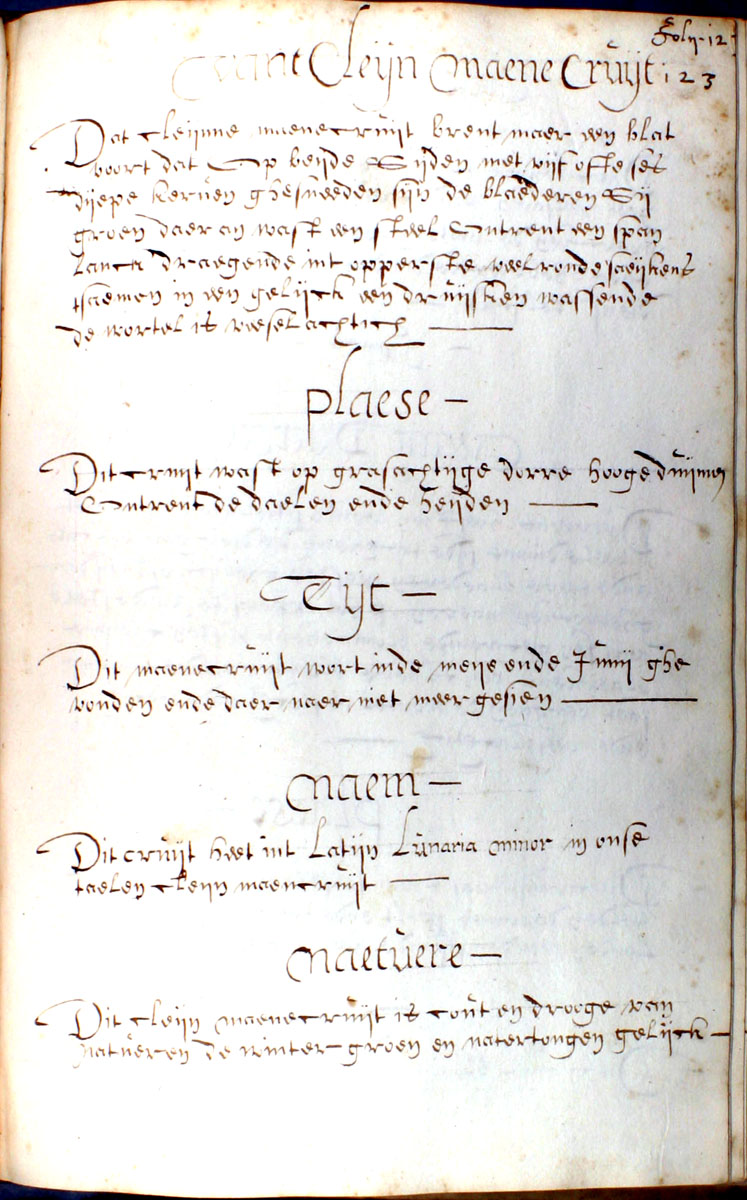 Foly. 12
Vant Cleijn Maene Cruijt 123
Dat cleijnne maenecruijt brent maer een blat
voort dat Op beijde Sijden met vijf ofte ses
dijepe kerven ghesneeden sijn de blaederen Sij
groen daer an wast een steel Ontrent een span
lanck draegende int opperste veel ronde saeijkens
tsaemen in een gelijck een druijfken wassende
de wortel is veeselachtich
plaese
Dit cruijt wast op grasachtijge dorre hooge duijnen
Ontrent de daelen ende heijden
Tijt
Dit maenecruijt wort inde meije ende Junij ghe
vonden ende daer naer niet meer gesien
Naem
Dit cruijt heet int Latijn Lunaria minor in onse
taelen cleijn maencruijt
Naetuere
Dit cleijn maenecruijt is cout en drooge van
natueren de winter groen en natertongen gelijck